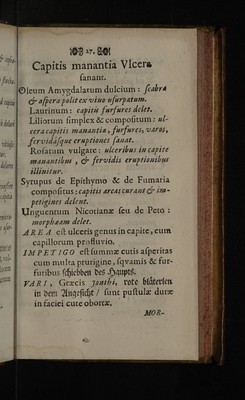 17.
Capitis manantia Vlcera
sanant.
Oleum Amygdalarum dulcium : scabra
& aspera polit ex vino usurpatum.
Laurinum : capitis furfures delet.
Liliorum simplex & compositum : ul-
cera capitis manantia, furfures, varos,
fervidasque eruptiones sanat.
Rosatum vulgare : ulceribus in capite
manantibus , & fervidis eruptionibus
illinitur.
Syrupus de Epithymo & de Fumaria
compositus : capitis areas curant & im-
petigines delent.
Unguentum Nicotianæ seu de Peto :
morphæam delet.
AREA est ulceris genus in capite, cum
capillorum profluvio.
IMPETIGO est summæ cutis asperitas
cum multa prurigine, squamis & fur-
furibus schiebben des Haupts.
VARI , Græcis jonthi, rote bläterlen
in dem Angesicht / sunt pustulæ duræ
in faciei cute obortæ.
MOR-